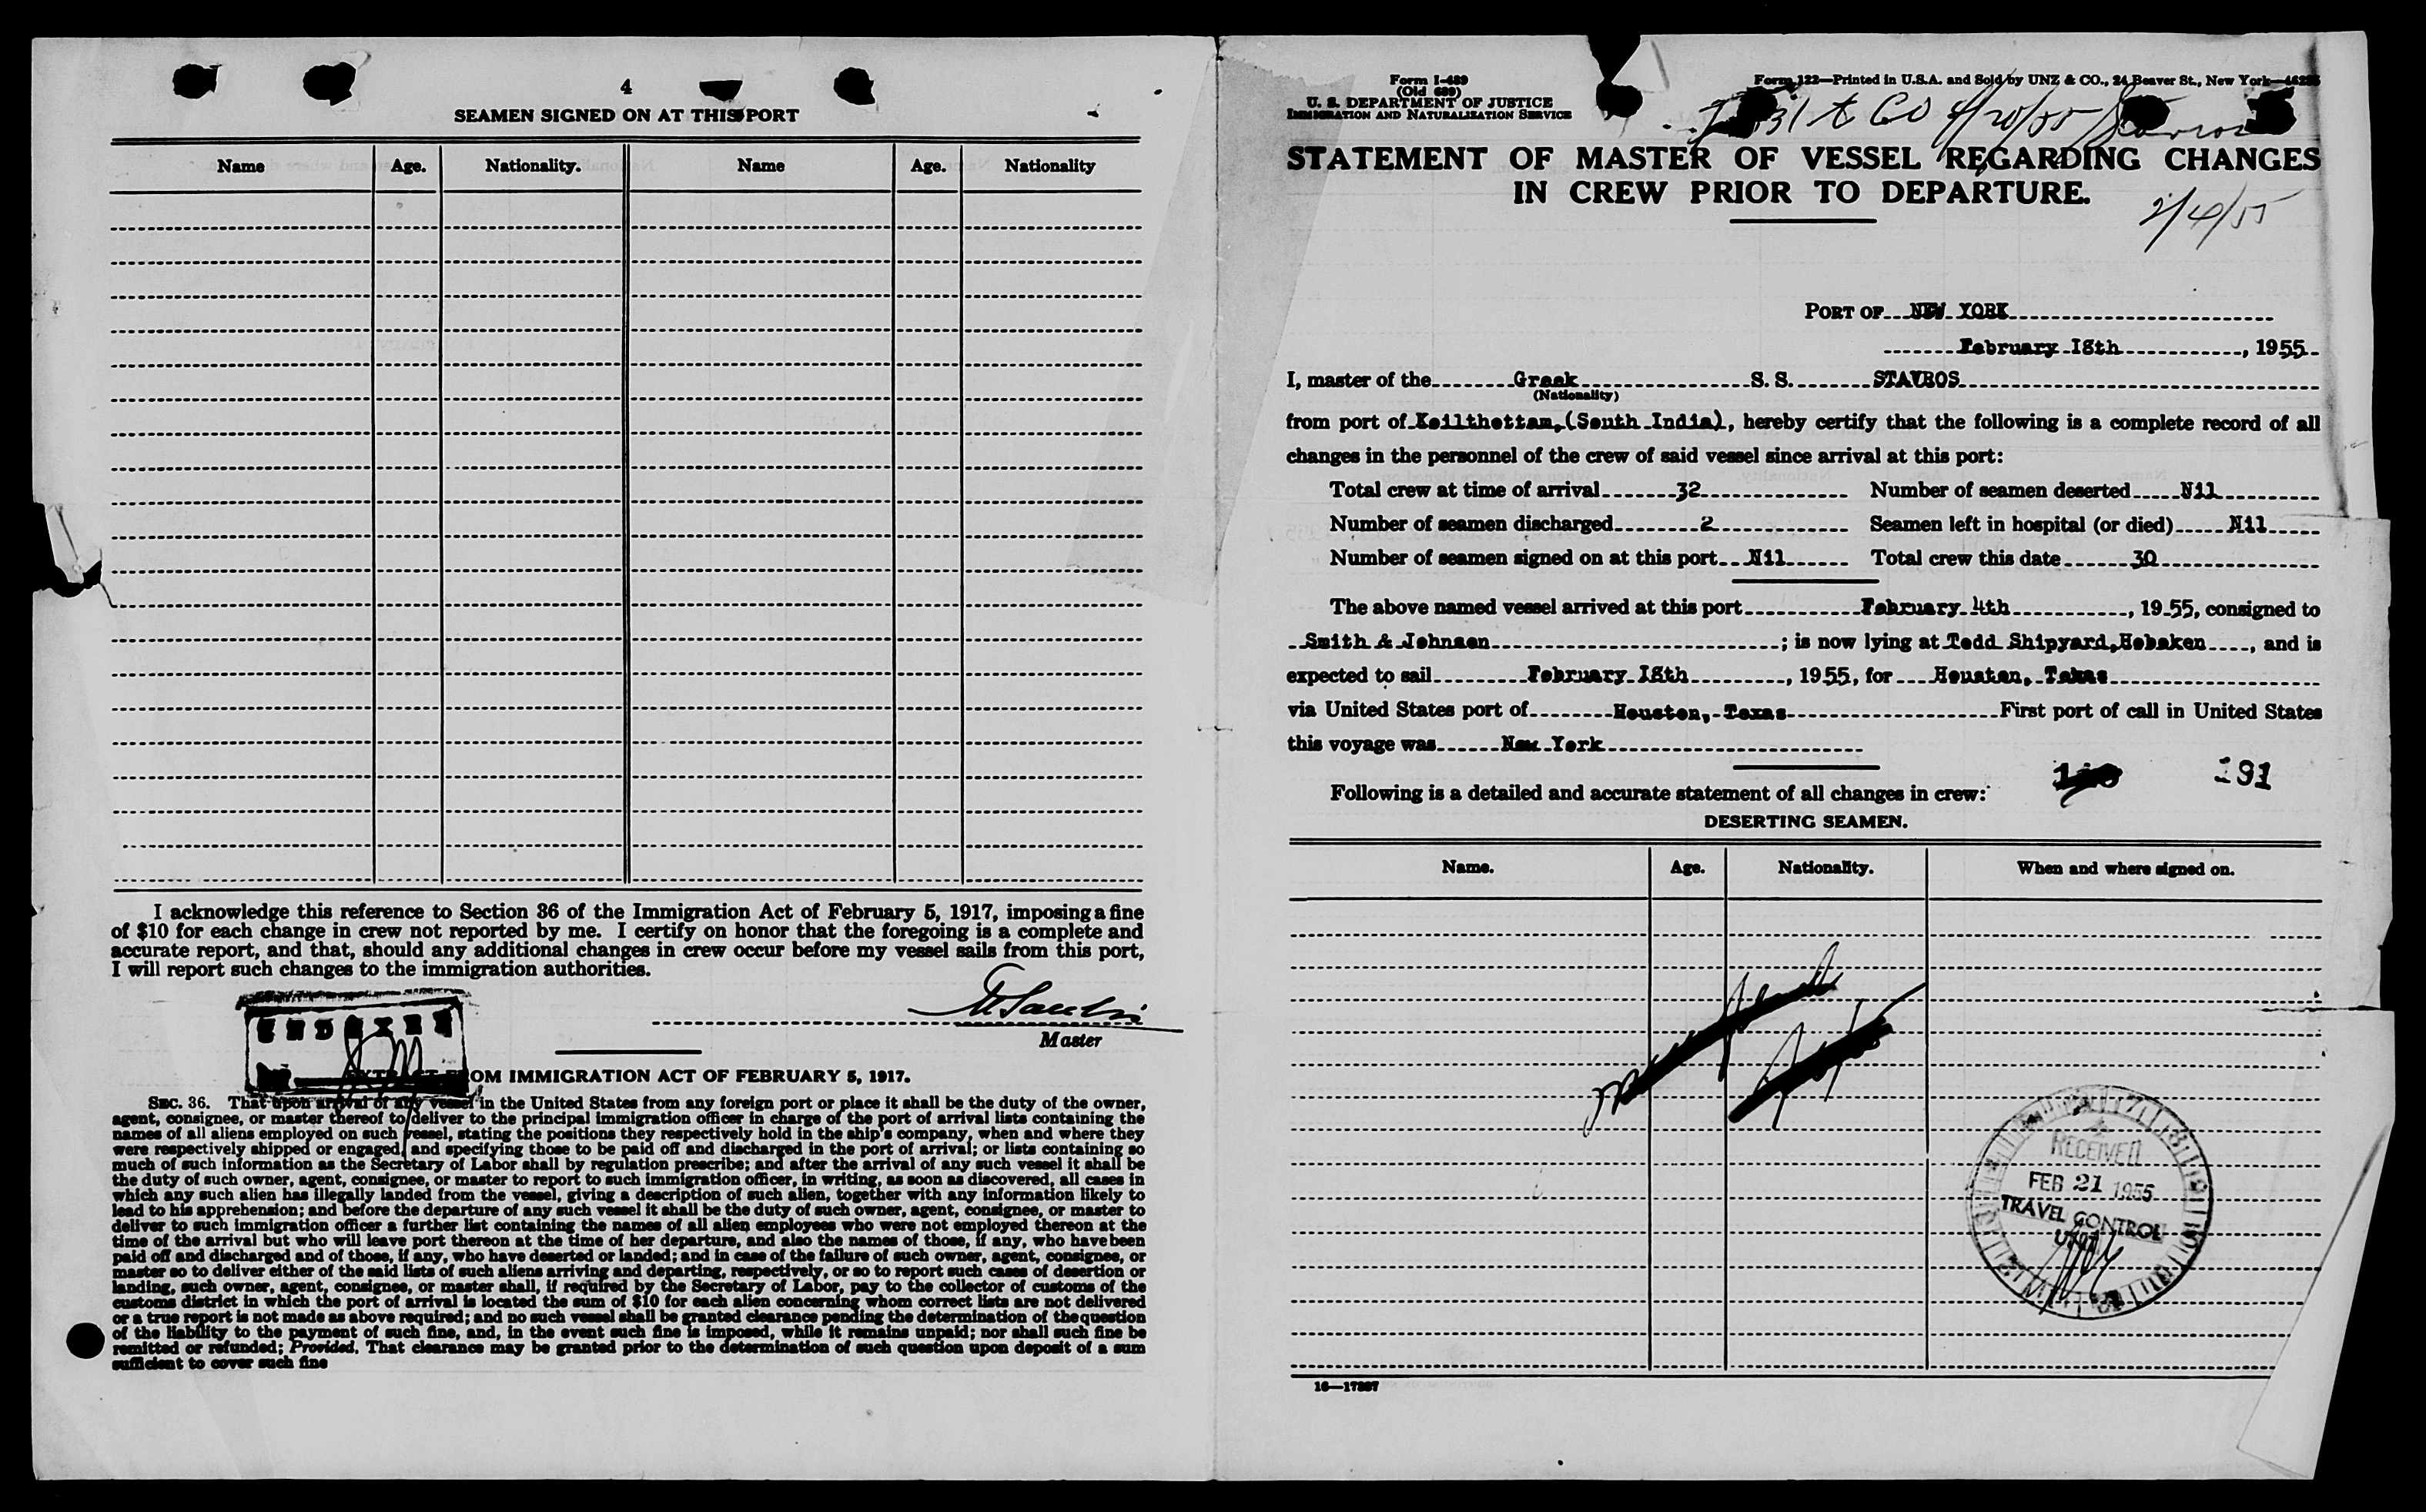 4
SEAMEN SIGNED ON AT THIS PORT
Name Age. Nationality. Name Age. Nationality
I acknowledge this reference to Section 36 of the Immigration Act of February 5, 1917, imposing a fine
of $10 for each change in crew not reported by me. I certify on honor that the foregoing is a complete and
accurate report, and that, should any additional changes in crew occur before my vessel sails from this port,
I will report such changes to the immigration authorities.
Master
EXTRACT FROM IMMIGRATION ACT OF FEBRUARY 5, 1917.
SEC. 36. That upon arrival of any vessel in the United States from any foreign port or place it shall be the duty of the owner,
agent, consignee, or master thereof to deliver to the principal immigration officer in charge of the port of arrival lists containing the
names of all aliens employed on such vessel, stating the positions they respectively hold in the ship's company, when and where they
were respectively shipped or engaged, and specifying those to be paid off and discharged in the port of arrival; or lists containing so
much of such information as the Secretary of Labor shall by regulation prescribe; and after the arrival of any such vessel it shall be
the duty of such owner, agent, consignee, or master to report to such immigration officer, in writing, as soon as discovered, all cases in
which any such alien has illegally landed from the vessel, giving a description of such alien, together with any information likely to
lead to his apprehension; and before the departure of any such vessel it shall be the duty of such owner, agent, consignee, or master to
deliver to such immigration officer a further list containing the names of all alien employees who were not employed thereon at the
time of the arrival but who will leave port thereon at the time of her departure, and also the names of those, if any, who have been
paid off and discharged and of those, if any, who have deserted or landed; and in case of the failure of such owner, agent, consignee, or
master so to deliver either of the said lists of such aliens arriving and departing, respectively, or so to report such cases of desertion or
landing, such owner, agent, consignee, or master shall, if required by the Secretary of Labor, pay to the collector of customs of the
customs district in which the port of arrival is located the sum of $10 for each alien concerning whom correct lists are not delivered
or a true report is not made as above required; and no such vessel shall be granted clearance pending the determination of the question
of the liability to the payment of such fine, and, in the event such fine is imposed, while it remains unpaid; nor shall such fine be
remitted or refunded; Provided, That clearance may be granted prior to the determination of such question upon deposit of a sum
sufficient to cover such fine
Form I-489
(Old 689)
U. S. DEPARTMENT OF JUSTICE
IMMIGRATION AND NATURALIZATION SERVICE
Form 122—Printed in U.S.A. and Sold by UNZ & CO., 24 Beaver St., New York
STATEMENT OF MASTER OF VESSEL REGARDING CHANGES
IN CREW PRIOR TO DEPARTURE.
2/4/55
PORT OF NEW YORK
February 18th, 1955
I, master of the Greek S. S. STAVROS
(Nationality)
from port of Koilthottam,(South India), hereby certify that the following is a complete record of all
changes in the personnel of the crew of said vessel since arrival at this port:
Total crew at time of arrival 32 Number of seamen deserted Nil
Number of seamen discharged 2 Seamen left in hospital (or died) Nil
Number of seamen signed on at this port Nil Total crew this date 30
The above named vessel arrived at this port February 4th, 1955, consigned to
Smith & Johnsen; is now lying at Todd Shipyard,Hoboken, and is
expected to sail February 18th, 1955, for Houston, Texas
via United States port of Houston, Texas First port of call in United States
this voyage was New York
191
Following is a detailed and accurate statement of all changes in crew:
DESERTING SEAMEN.
Name. Age. Nationality. When and where signed on.
RECEIVED
FEB 21 1955
TRAVEL CONTROL
UNIT
16—17887